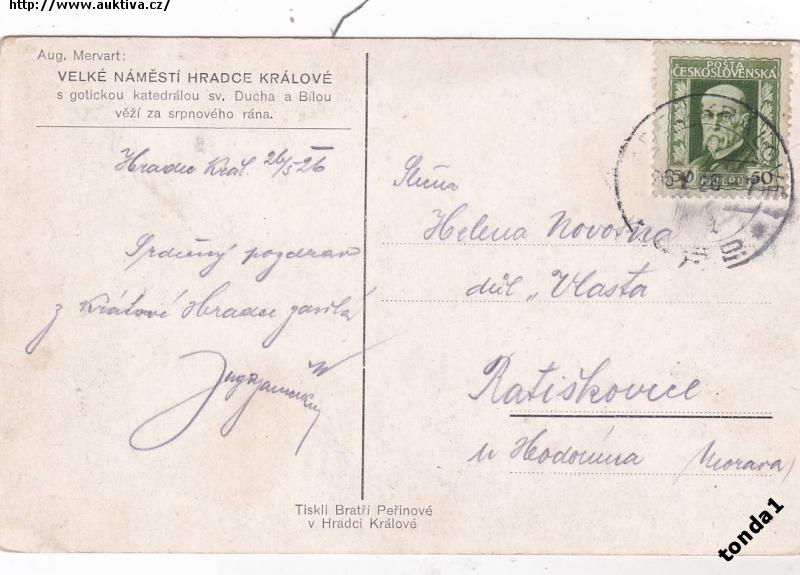 http://www.auktiva.cz/
Aug. Mervart:
VELKÉ NÁMĚSTÍ HRADCE KRÁLOVÉ
s gotickou katedrálou sv. Ducha a Bílou
věží za srpnového rána.
Hradec Král. 26/5 26
Srdečný pozdrav
z Králové Hradce zasílá
POŠTA
ČESKOSLOVENSKÁ
50 50
Slečna
Helena Novotná
důl „Vlasta
Ratiškovice
u Hodonína Morava
Tiskli Bratří Peřinové
v Hradci Králové
tonda1